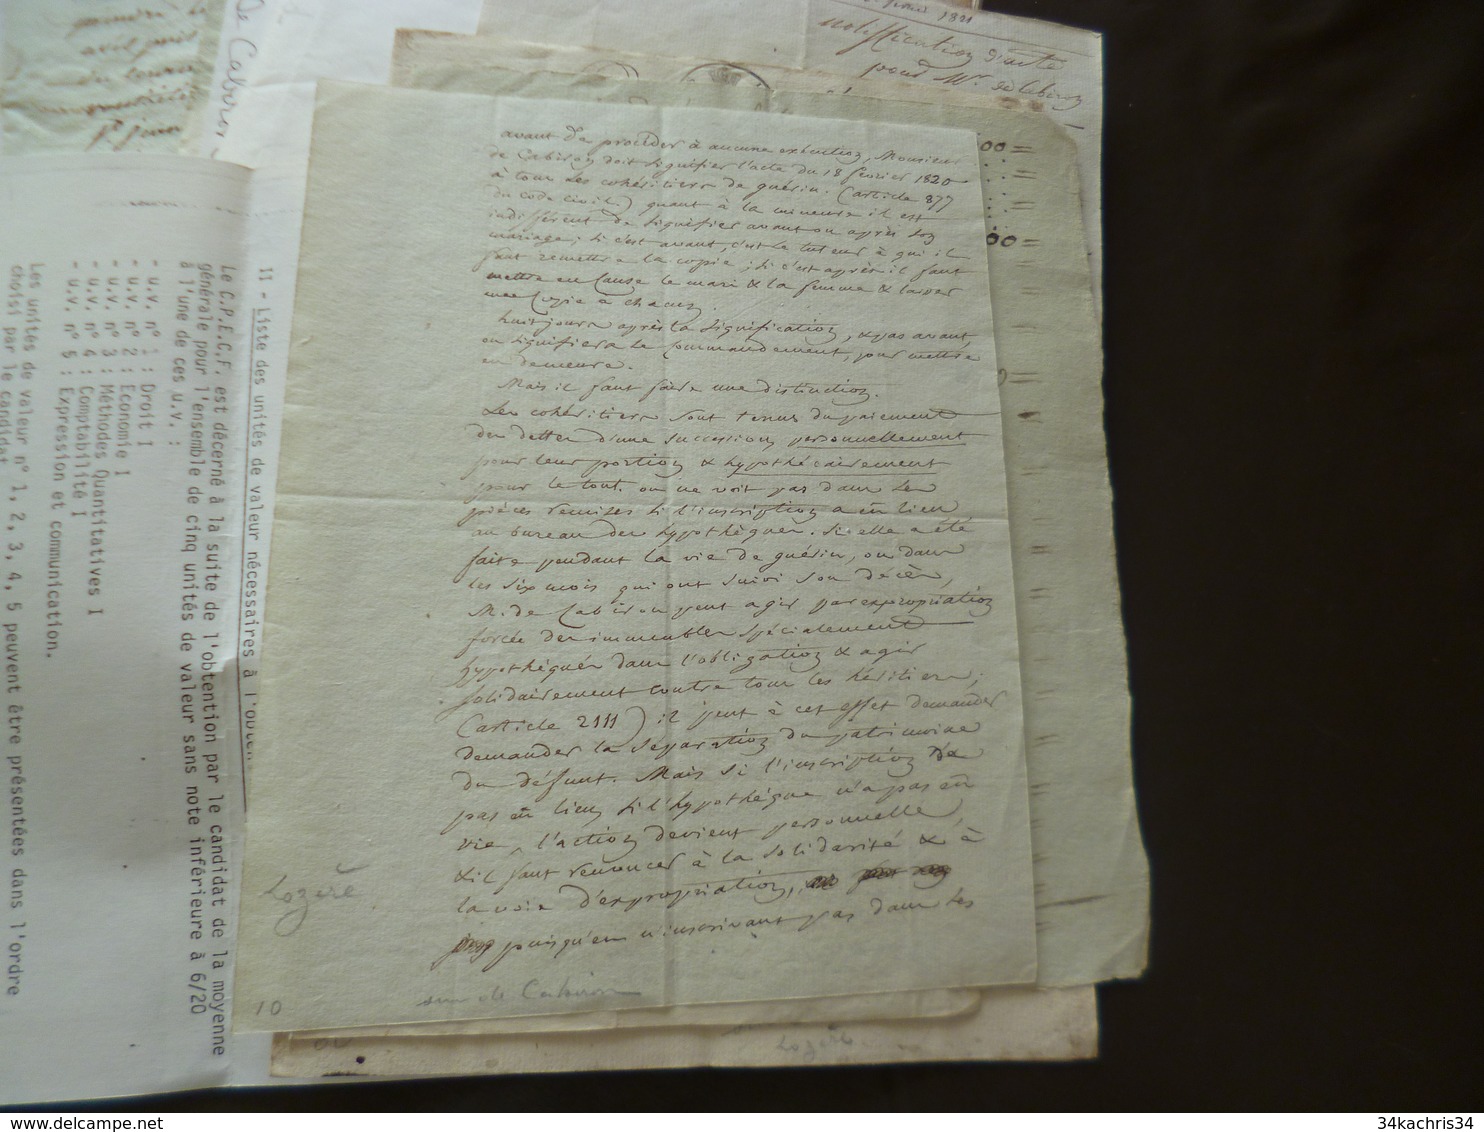 février 1821
notiffication d'acte
pour Mr. de Cabiron
de Cabiron
avant de procéder à aucune exécution, Monsieur
de Cabiron doit signifier l'acte du 18 février 1820
à tous les cohéritiers de guérin. (article 877
du code civil.) quant à la mineure il est
indifférent de signifier avant ou après son
mariage; si c'est avant, c'est le tuteur à qui il
faut remettre la copie; si c'est après il faut
mettre en cause le mari & la femme & laisser
une copie à chacun.
huit jours après la signification, & pas avant,
on signifiera le commandement, pour mettre
en demeure.
Mais il faut faire une distinction.
Les cohéritiers sont tenus du paiement
des dettes d'une succession personnellement
pour leur portion & hypothécairement
pour le tout. on ne voit pas dans les
pièces remises si l'inscription a eu lieu
au bureau des hypothèques. Si elle a été
faite pendant la vie de guérin, ou dans
les six mois qui ont suivi son décès,
M. de Cabiron peut agir par expropriation
forcée des immeubles spécialement
hypothéqués dans l'obligation & agir
solidairement contre tous les héritiers;
(article 2111) il peut à cet effet demander
demander la séparation du patrimoine
du défunt. Mais si l'inscription n'a
pas eu lieu si l'hypothèque n'a pas eu
vie, l'action devient personnelle,
& il faut renoncer à la solidarité & à
la voie d'expropriation,
puisqu'en n'inscrivant pas dans les
Lozère
10
de Cabiron
Lozère
II - Liste des unités de valeur nécessaires à l'obten
Le C.P.E.C.F. est décerné à la suite de l'obtention par le candidat de la moyenne
générale pour l'ensemble de cinq unités de valeur sans note inférieure à 6/20
à l'une de ces u.v. :
- u.v. n° 1 : Droit I
- u.v. n° 2 : Economie I
- u.v. n° 3 : Méthodes Quantitatives I
- u.v. n° 4 : Comptabilité I
- u.v. n° 5 : Expression et communication.
Les unités de valeur n° 1, 2, 3, 4, 5 peuvent être présentées dans l'ordre
choisi par le candidat
34kachris34